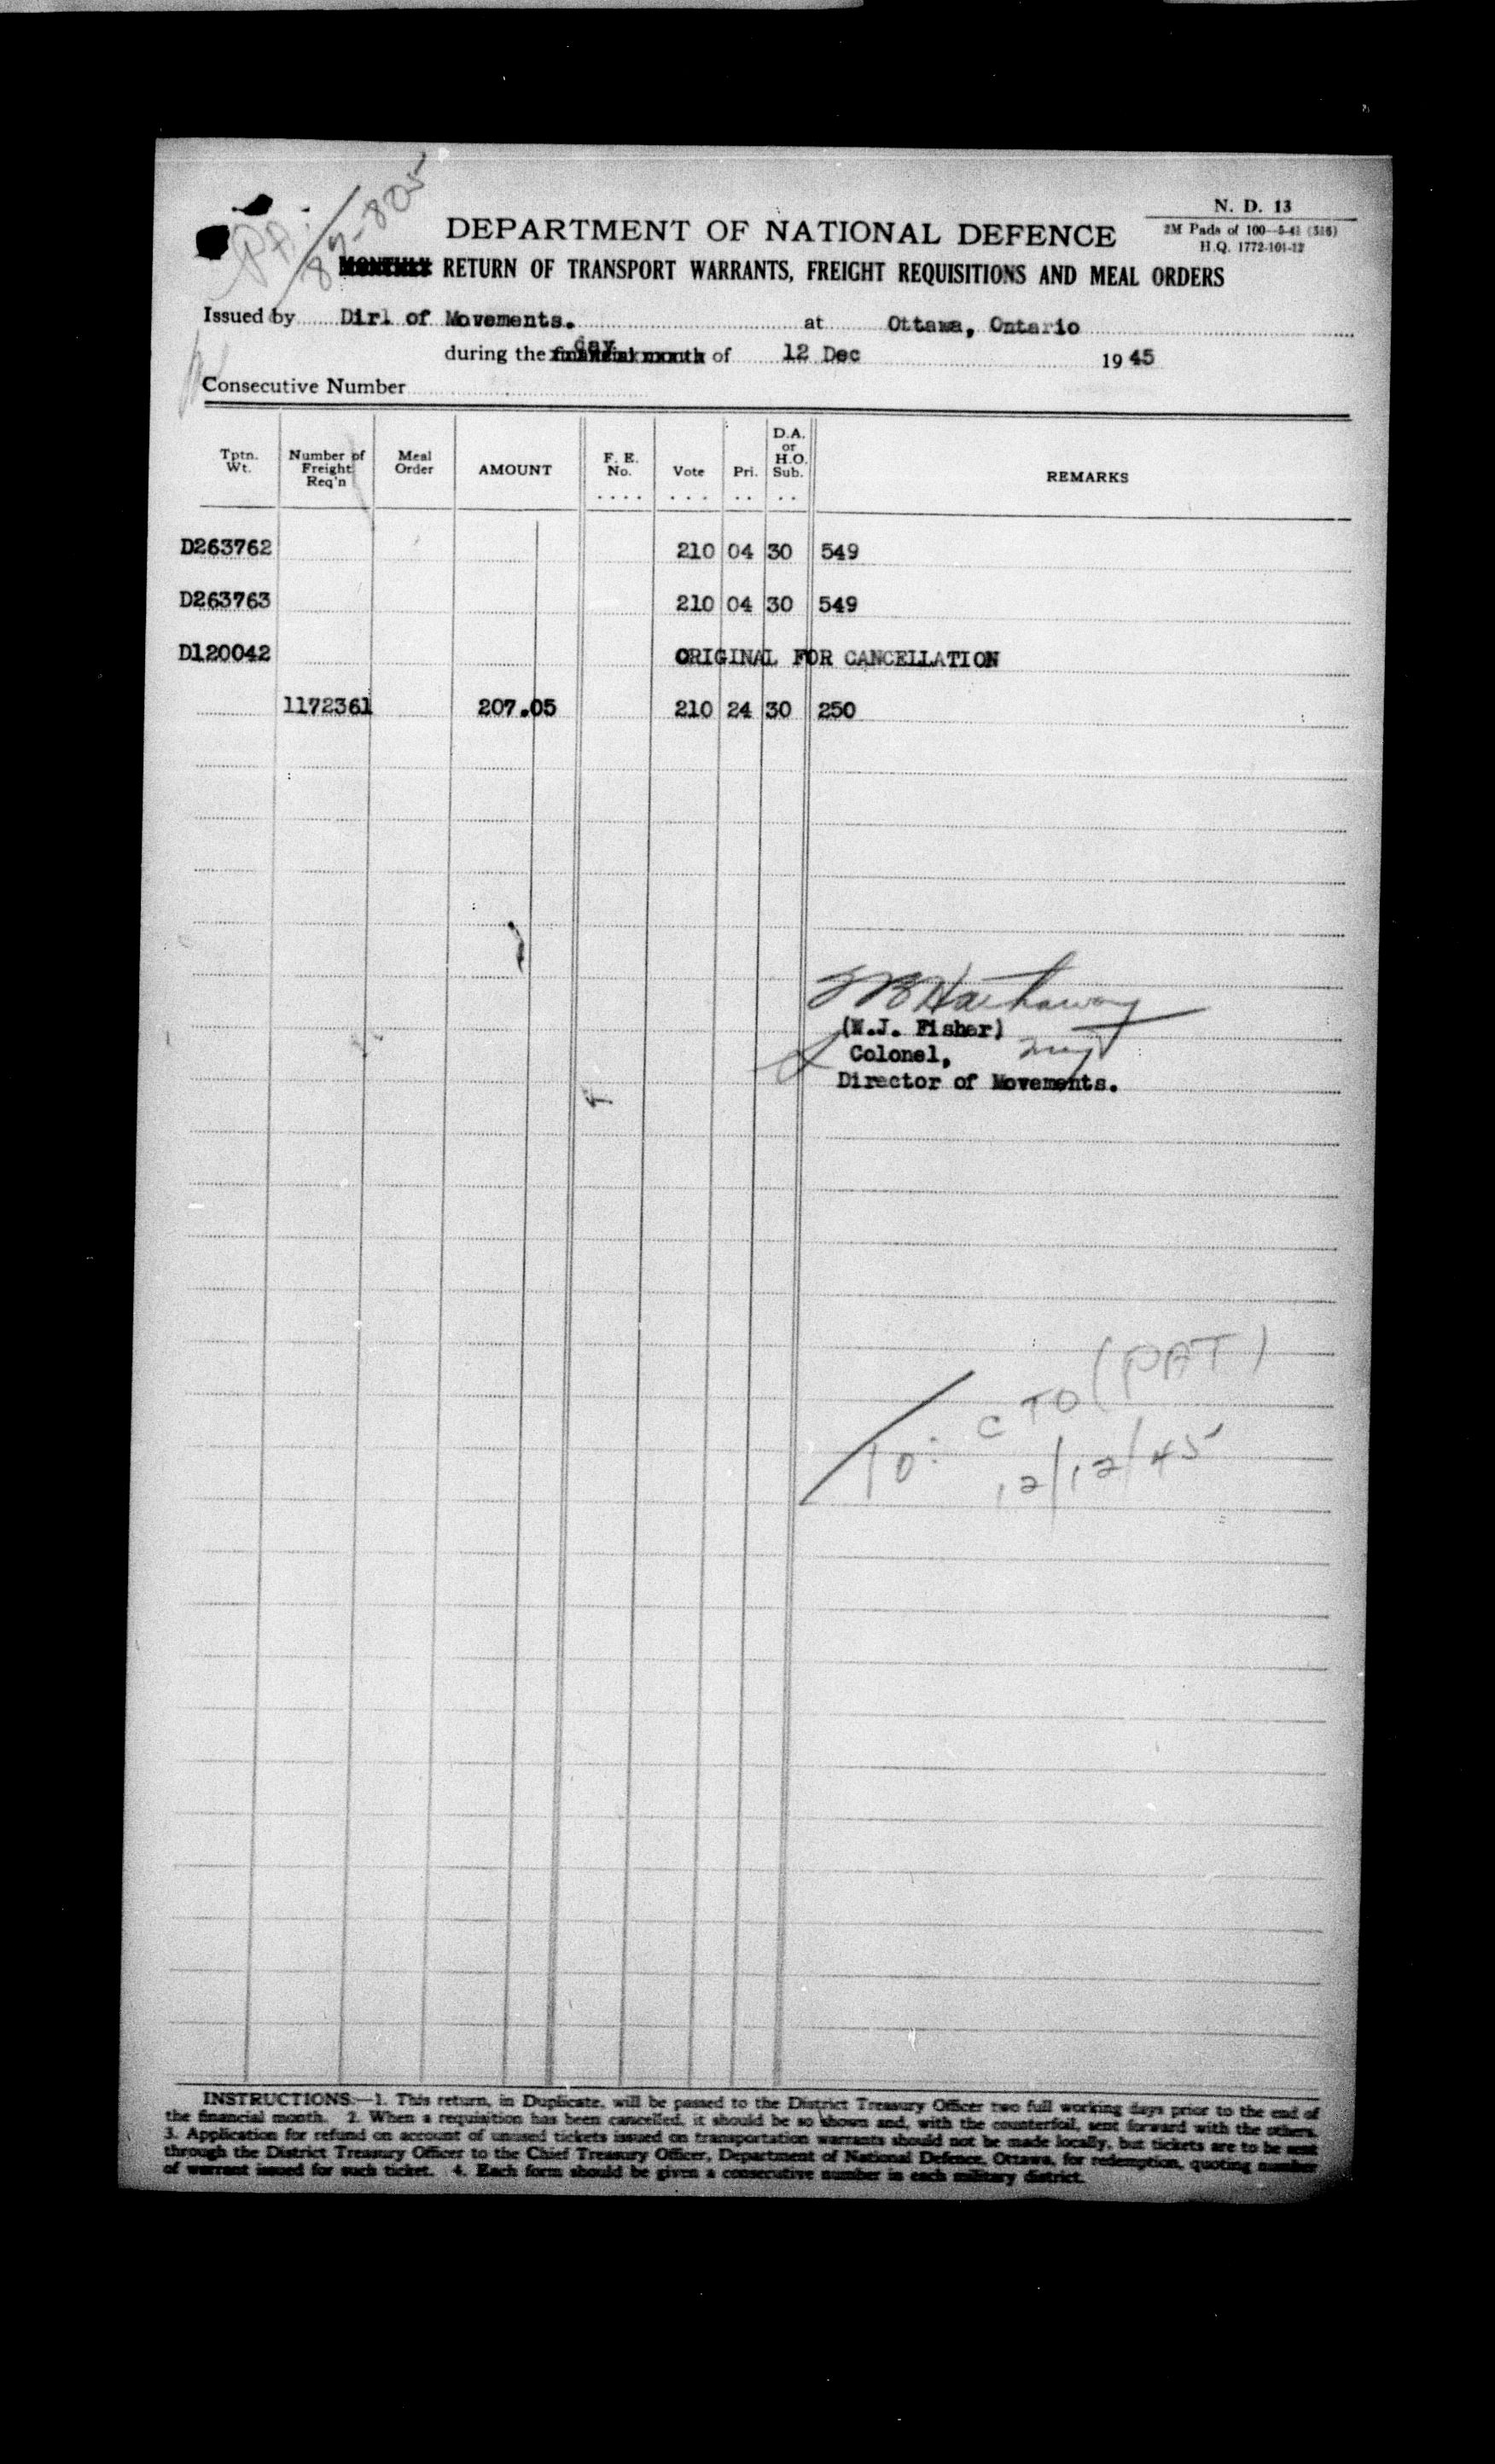 PA.
87-805
N. D. 13
2M Pads of 100—5-41 (516)
H.Q. 1772-101-12
DEPARTMENT OF NATIONAL DEFENCE
MONTHLY RETURN OF TRANSPORT WARRANTS, FREIGHT REQUISITIONS AND MEAL ORDERS
Issued by Dirl of Movements. at Ottawa, Ontario
day
during the financial month of 12 Dec 1945
Consecutive Number
Tptn. Wt. Number of Freight Req'n Meal Order AMOUNT F. E. No. Vote Pri. D.A. or H.O. Sub. REMARKS
D263762 210 04 30 549
D263763 210 04 30 549
D120042 ORIGINAL FOR CANCELLATION
1172361 207.05 210 24 30 250
Hathaway
(N.J. Fisher)
Colonel, Maj
Director of Movements.
CTO (PAT)
10: 12/12/45
INSTRUCTIONS.—1. This return, in Duplicate, will be passed to the District Treasury Officer two full working days prior to the end of
the financial month. 2. When a requisition has been cancelled, it should be so shown and, with the counterfoil, sent forward with the others.
3. Application for refund on account of unused tickets issued on transportation warrants should not be made locally, but tickets are to be sent
through the District Treasury Officer to the Chief Treasury Officer, Department of National Defence, Ottawa, for redemption, quoting number
of warrant issued for such ticket. 4. Each form should be given a consecutive number in each military district.